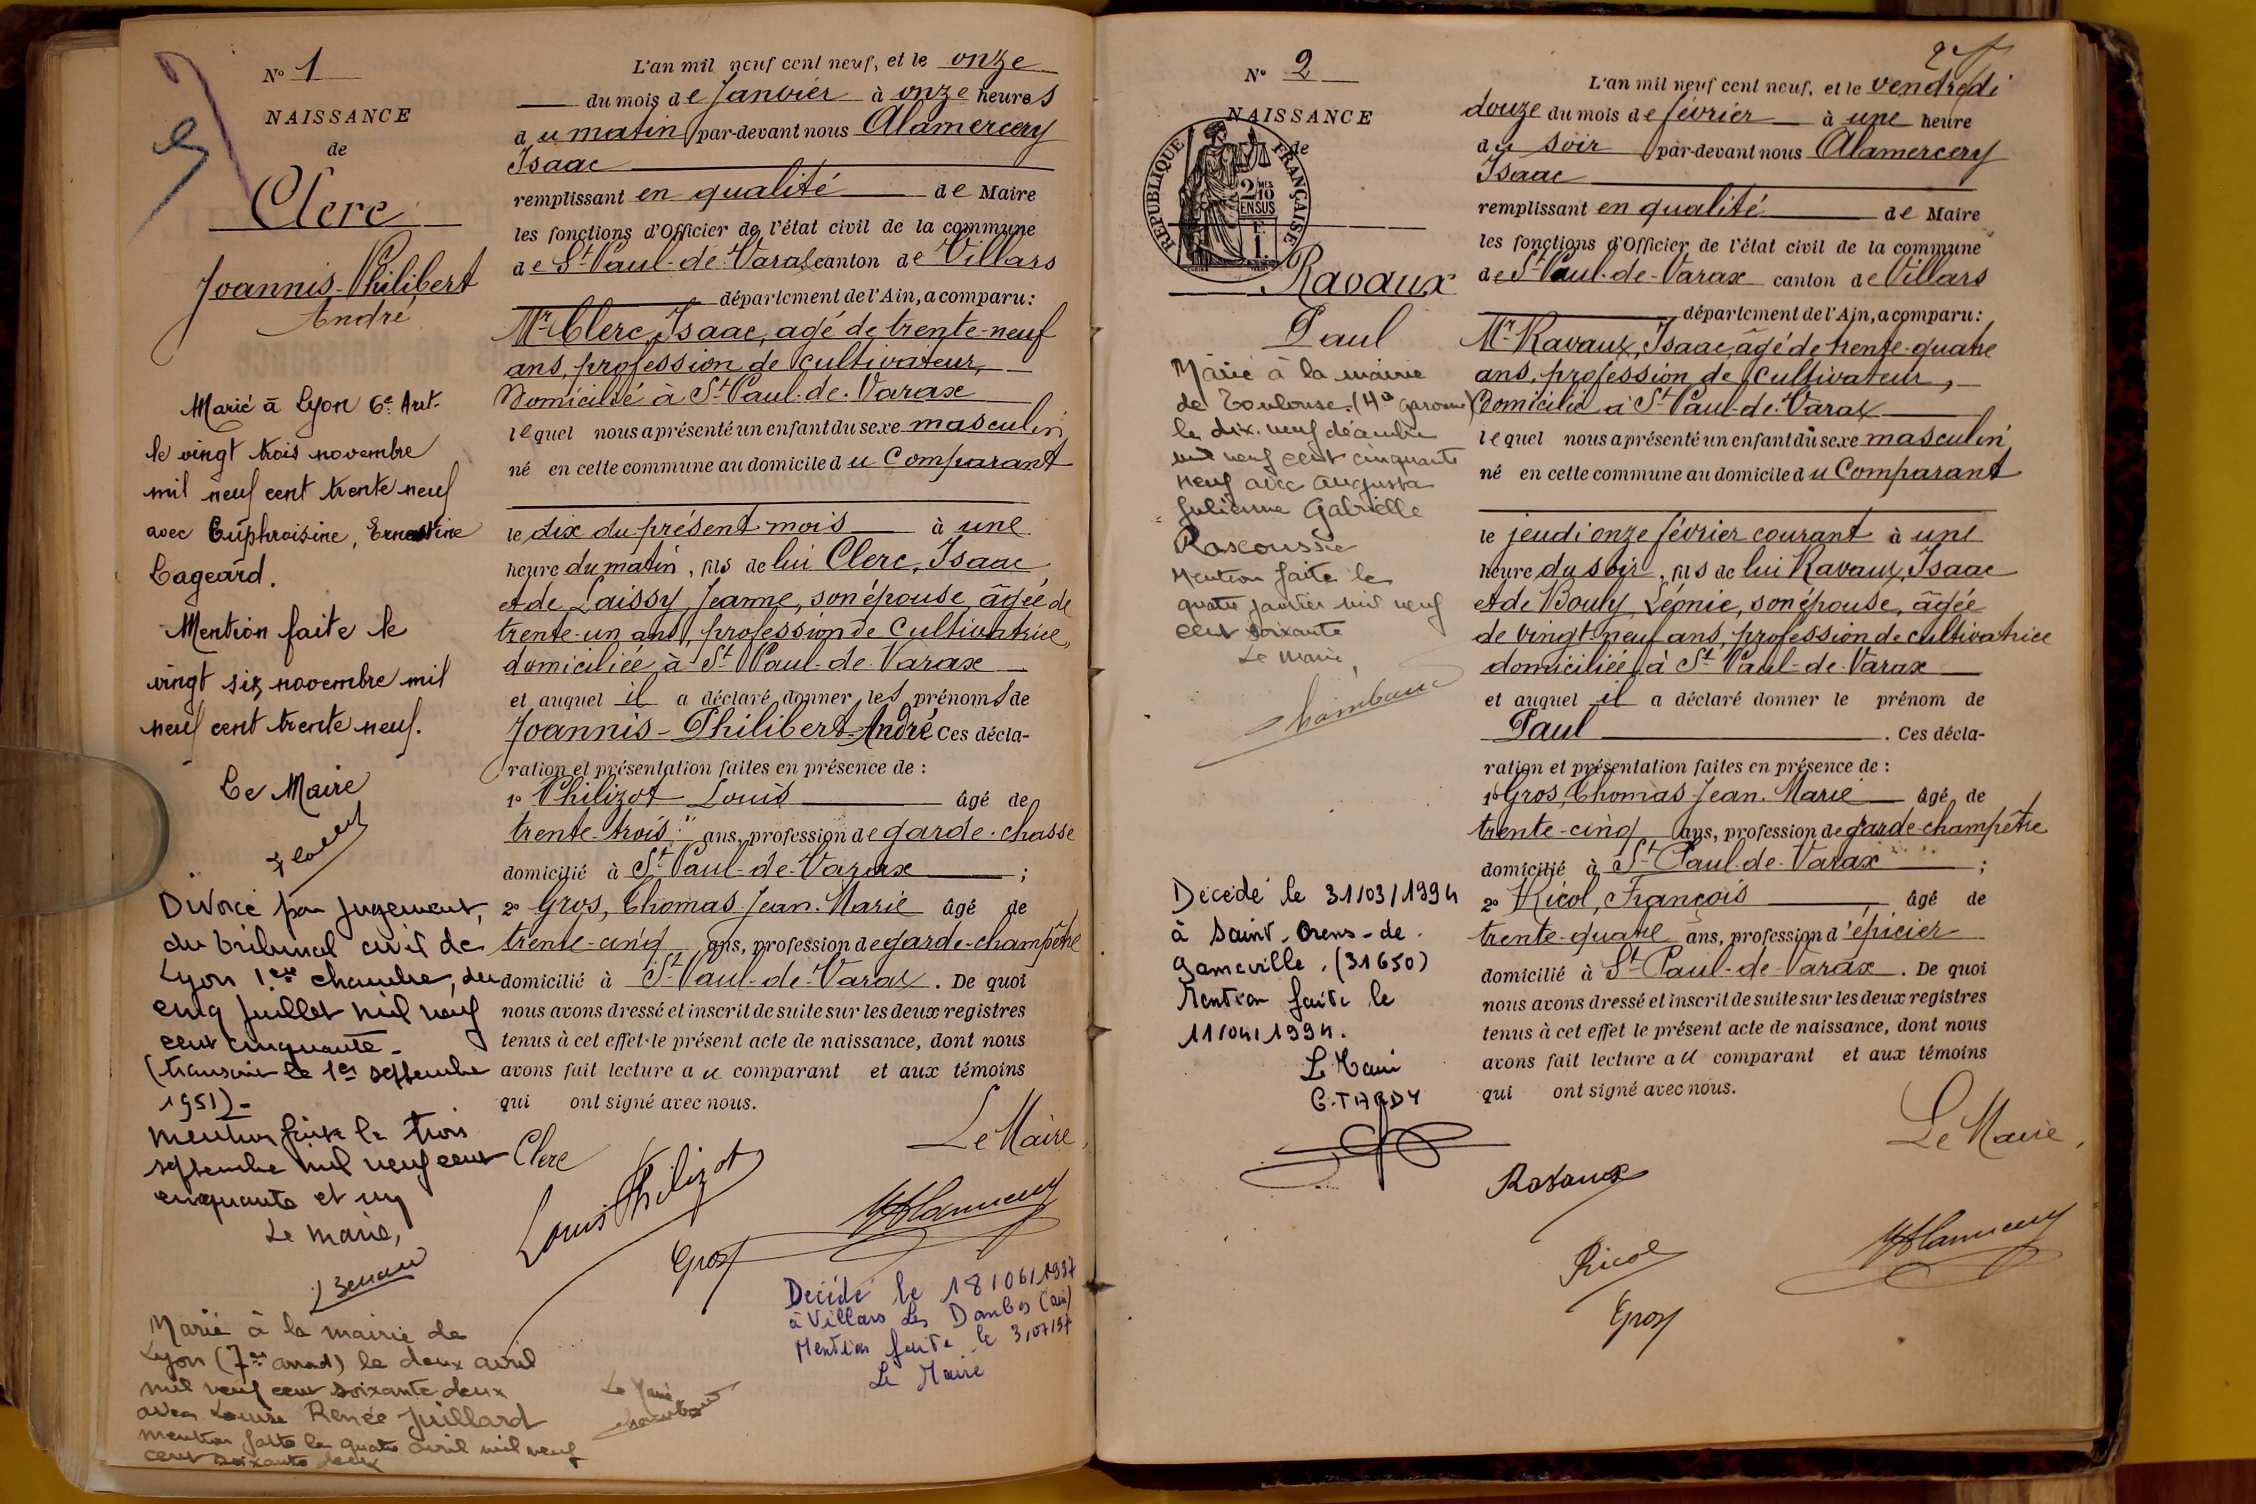 Nº 1
NAISSANCE
de
Clerc
Joannis-Philibert
André
Marié à Lyon 6e Arrt.
le vingt trois novembre
mil neuf cent trente neuf
avec Euphraisine, Ernestine
Cageard.
Mention faite le
vingt six novembre mil
neuf cent trente neuf.
Le Maire
Divorcé par jugement,
du tribunal civil de
Lyon 1ère chambre, du
cinq juillet mil neuf
cent cinquante -
(transcrit le 1er septembre
1951) -
Mention faite le trois
septembre mil neuf cent
cinquante et un
Le Maire,
Marié à la mairie de
Lyon (7e arrond) le deux avril
mil neuf cent soixante deux
avec Louise Renée Juillard
mention faite le quatre avril mil neuf
cent soixante deux
Le Maire
L'an mil neuf cent neuf, et le onze
du mois de Janvier à onze heures
du matin par-devant nous Alamercery
Isaac
remplissant en qualité de Maire
les fonctions d'Officier de l'état civil de la commune
de St Paul-de-Varax canton de Villars
département de l'Ain, a comparu :
Mr Clerc, Isaac, agé de trente-neuf
ans, profession de cultivateur,
Domicilié à St Paul-de-Varax
lequel nous a présenté un enfant du sexe masculin
né en cette commune au domicile du Comparant
le dix du présent mois à une
heure du matin, fils de lui Clerc, Isaac
et de Laissy Jeanne, son épouse, âgée de
trente-un ans, profession de Cultivatrice,
domiciliée à St Paul-de-Varax
et auquel il a déclaré donner les prénoms de
Joannis-Philibert-André Ces décla-
ration et présentation faites en présence de :
1º Philizot Louis âgé de
trente-trois ans, profession de garde-chasse
domicilié à St Paul-de-Varax ;
2º Gros, Thomas Jean-Marie âgé de
trente-cinq ans, profession de garde-champêtre
domicilié à St Paul-de-Varax. De quoi
nous avons dressé et inscrit de suite sur les deux registres
tenus à cet effet le présent acte de naissance, dont nous
avons fait lecture au comparant et aux témoins
qui ont signé avec nous.
Le Maire,
Clerc
Louis Philizot
Gros
Décédé le 18/06/1997
à Villars Les Dombes (ain)
Mention faite le 3/07/97
Le Maire
Nº 2
NAISSANCE
de
RÉPUBLIQUE FRANÇAISE
2 MES
10
EN SUS
Ravaux
Paul
Marié à la mairie
de Toulouse. (Hte Garonne)
le dix-neuf décembre
mil neuf cent cinquante
neuf avec Augusta
Julienne Gabrielle
Rascoussie
Mention faite le
quatre janvier mil neuf
cent soixante
Le Maire,
Décédé le 31/03/1994
à Saint-Orens-de-
Gameville. (31650)
Mention faite le
11/04/1994.
Le Maire
G. TARDY
L'an mil neuf cent neuf, et le vendredi
douze du mois de février à une heure
du soir par-devant nous Alamercery
Isaac
remplissant en qualité de Maire
les fonctions d'Officier de l'état civil de la commune
de St Paul-de-Varax canton de Villars
département de l'Ain, a comparu :
Mr Ravaux, Isaac, âgé de trente-quatre
ans, profession de cultivateur,
Domicilié à St Paul-de-Varax
lequel nous a présenté un enfant du sexe masculin
né en cette commune au domicile du Comparant
le jeudi onze février courant à une
heure du soir, fils de lui Ravaux, Isaac
et de Bouly Léonie, son épouse, âgée
de vingt-neuf ans, profession de cultivatrice
domiciliée à St Paul-de-Varax
et auquel il a déclaré donner le prénom de
Paul. Ces décla-
ration et présentation faites en présence de :
1º Gros, Thomas Jean-Marie âgé de
trente-cinq ans, profession de garde-champêtre
domicilié à St Paul-de-Varax ;
2º Ricol, François âgé de
trente-quatre ans, profession d'épicier
domicilié à St Paul-de-Varax. De quoi
nous avons dressé et inscrit de suite sur les deux registres
tenus à cet effet le présent acte de naissance, dont nous
avons fait lecture au comparant et aux témoins
qui ont signé avec nous.
Le Maire,
Ravaux
Ricol
Gros